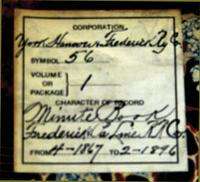 CORPORATION
York Hanover & Frederick Ry Co.
SYMBOL 56
VOLUME
OR 1
PACKAGE
CHARACTER OF RECORD
Minute Book
Frederick & Pa Line R.R. Co.
FROM 4-1867 TO 2-1896